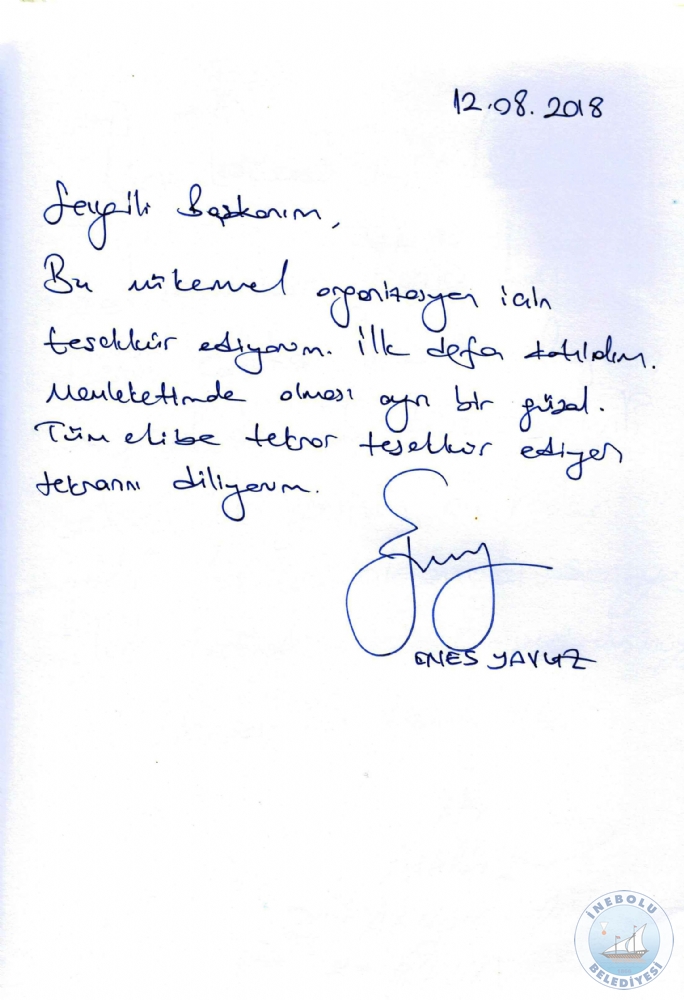 12.08.2018
Sevgili Başkanım,
Bu mükemmel organizasyon için
teşekkür ediyorum. İlk defa katıldım.
Memleketimde olması ayrı bir güzel.
Tüm ekibe tekrar teşekkür ediyor
tekrarını diliyorum.
ENES YAVUZ
İNEBOLU
BELEDİYESİ